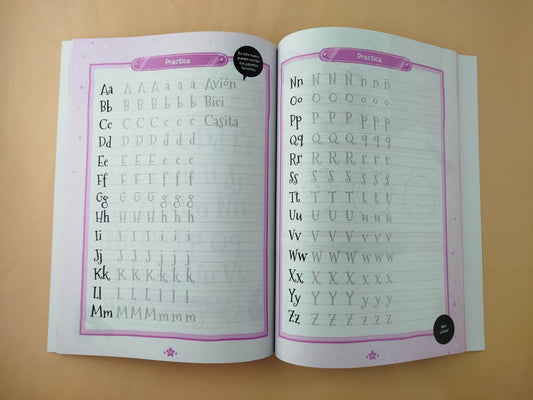 Practica
puedes escribir
tus juguetes
favoritos.
Aa A A A a a a Avión
Bb B B B b b b Bici
Cc C C C c c c Casita
Dd D D D d d d
Ee E E E e e e
Ff F F F f f f
Gg G G G g g g
Hh H H H h h h
Ii I I I i i i
Jj J J J j j j
Kk K K K k k k
Ll L L L l l l
Mm M M M m m m
Practica
Nn N N Ñ n n ñ
Oo O O O o o o
Pp P P P p p p
Qq Q Q Q q q q
Rr R R R r r r
Ss S S S s s s
Tt T T T t t t
Uu U U U u u u
Vv V V V v v v
Ww W W W w w w
Xx X X X x x x
Yy Y Y Y y y y
Zz Z Z Z z z z